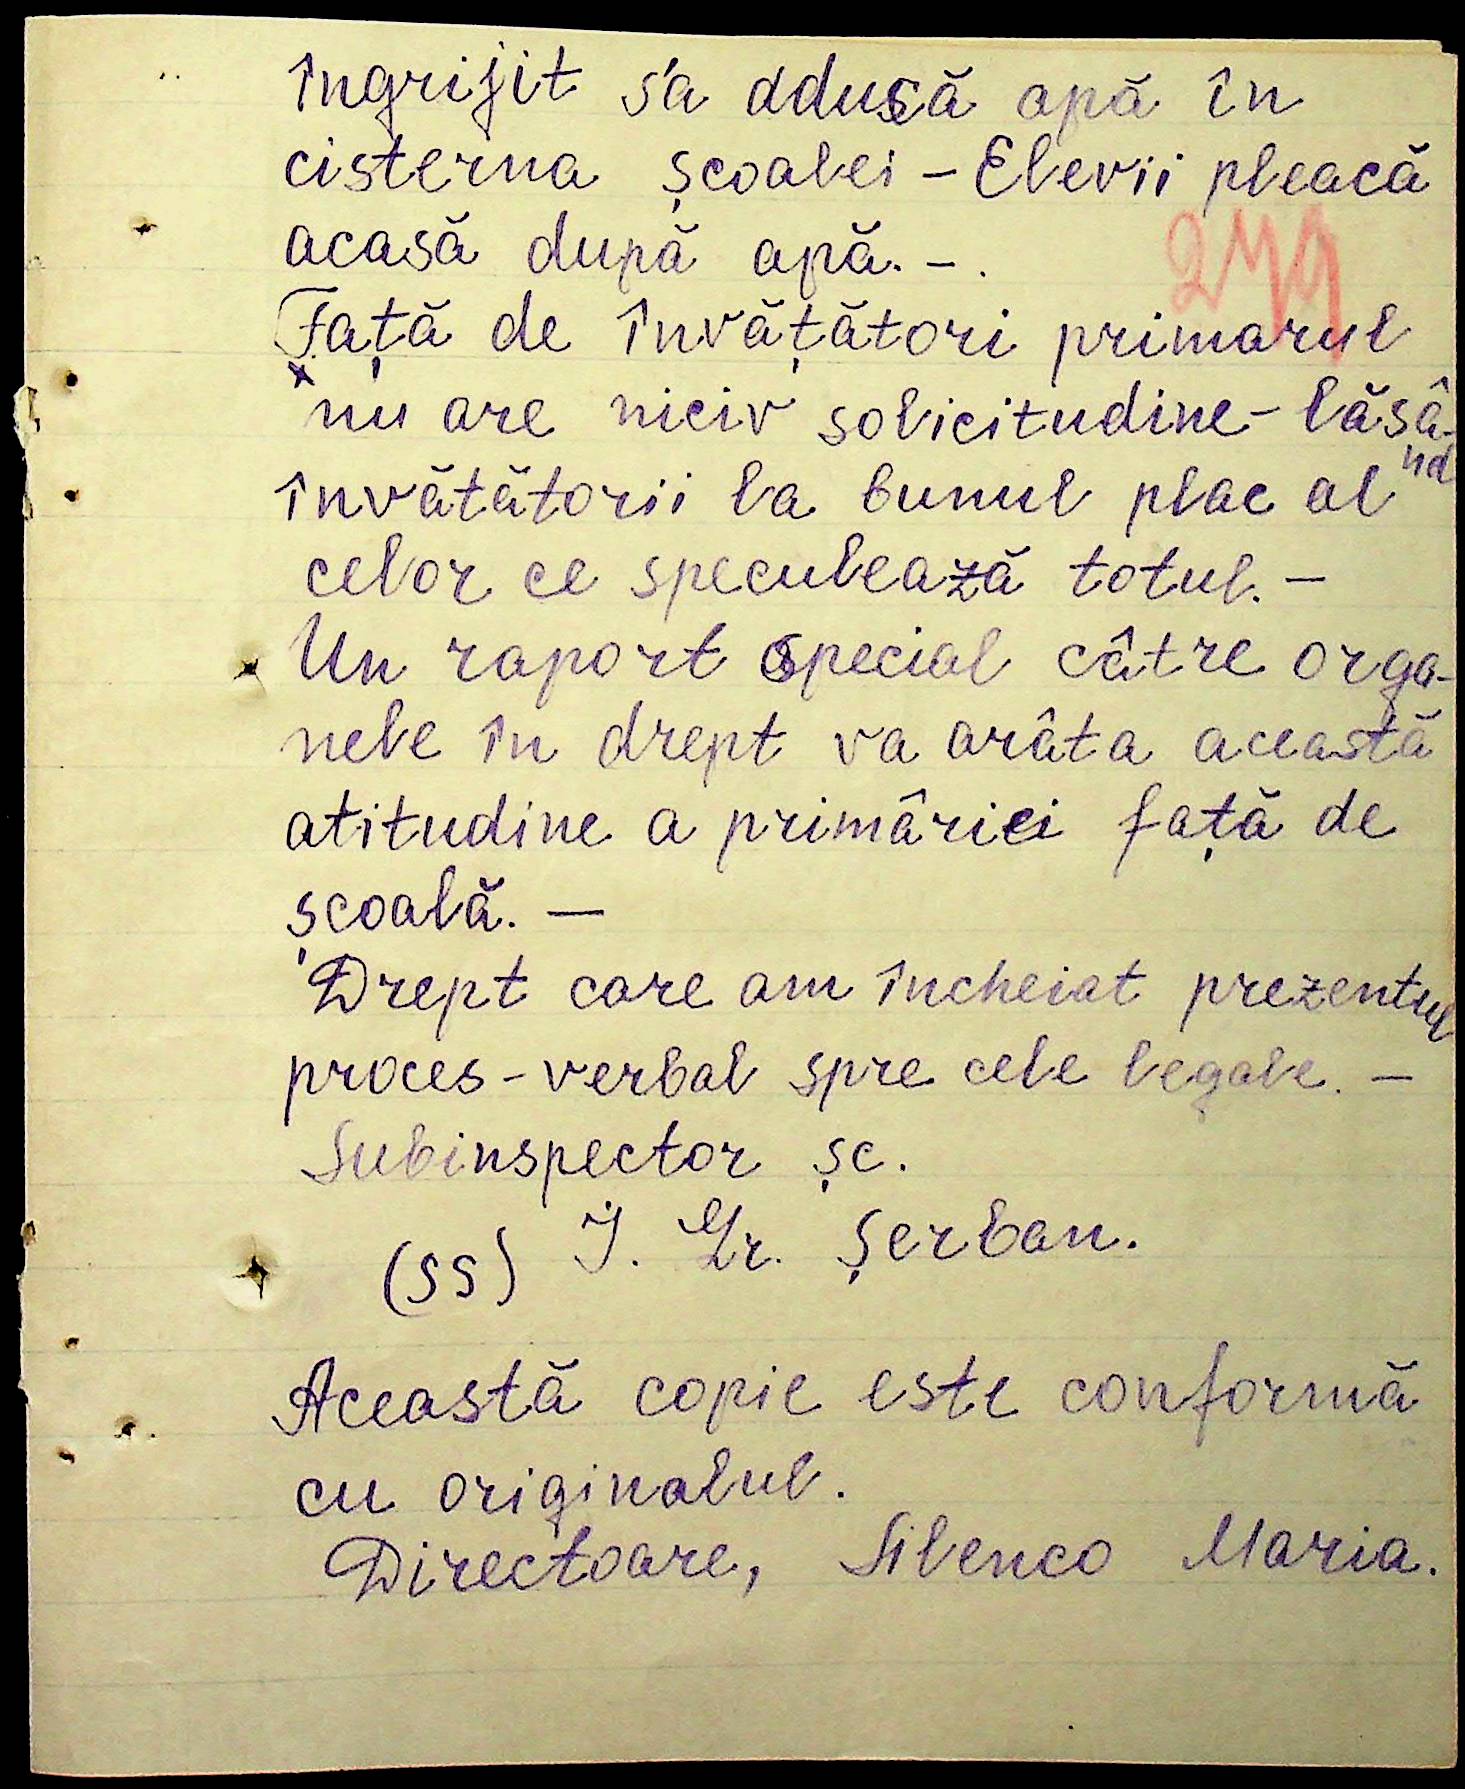 îngrijit s'a aducă apă în
cisterna școalei – Elevii pleacă
acasă după apă. – .
279
Față de învățători primarul
nu are niciv solicitudine – lăsâ-
nd
învătătorii la bunul plac al
celor ce speculează totul. –
Un raport special câtre orga-
nele în drept va arâta această
atitudine a primâriei față de
școală. –
Drept care am încheiat prezentul
proces-verbal spre cele legale. –
Subinspector șc.
(ss) I. Gr. Șerban.
Această copie este conformă
cu originalul.
Directoare, Silenco Maria.